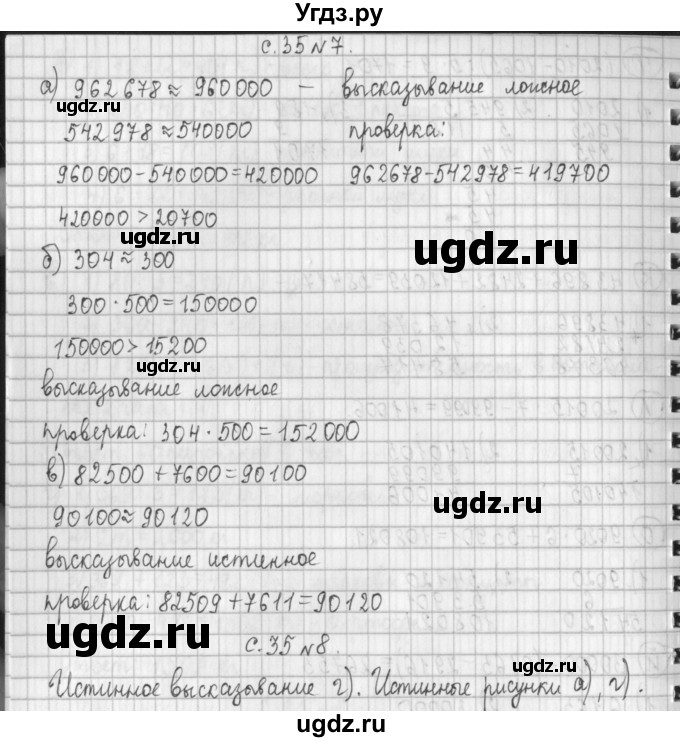 Угдз.ру
с.35 №7.
а) 962678 ≈ 960000 — высказывание ложное
ugdz.ru
542978 ≈ 540000 проверка:
960000-540000=420000 962678-542978=419700
420000 > 20700
ugdz.ru
ugdz.ru
б) 304 ≈ 300
300 · 500 = 150000
150000 > 15200
ugdz.ru
высказывание ложное
проверка: 304 · 500 = 152000
в) 82500 + 7600 = 90100
ugdz.ru
90100 ≈ 90120
высказывание истинное
проверка: 82509 + 7611 = 90120
ugdz.ru
с.35 №8.
ugdz.ru
Истинное высказывание г). Истинные рисунки а), г).
ugdz.ru